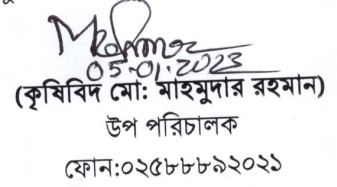 05-01-2023
(কৃষিবিদ মো: মাহমুদার রহমান)
উপ পরিচালক
ফোন:০২৫৮৮৮৯২০২১